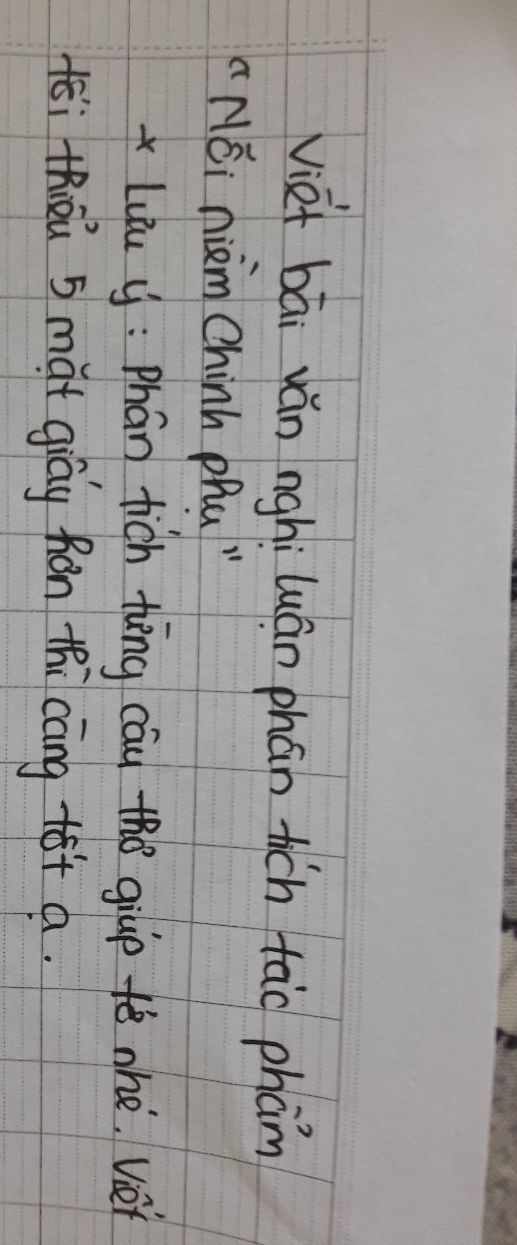 Viết bài văn nghị luận phân tích tác phẩm
"Nỗi niềm Chinh phụ"
* Lưu ý: Phân tích từng câu thơ giúp tớ nhé. Viết
tối thiểu 5 mặt giấy hơn thì càng tốt ạ.